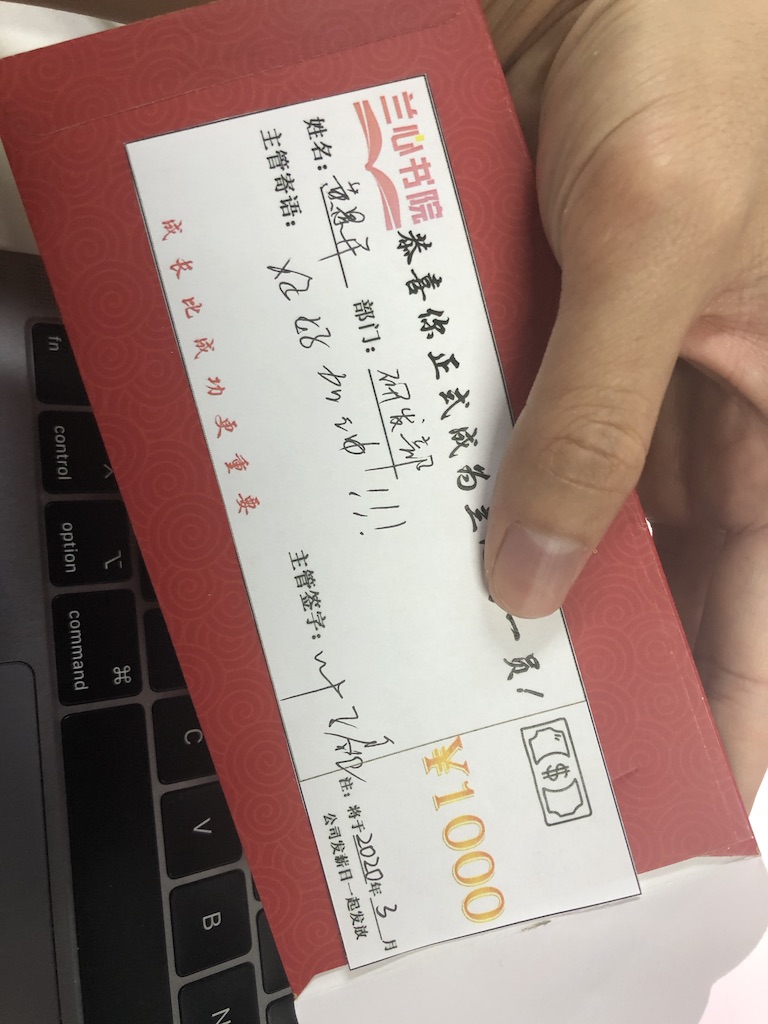 兰心书院
恭喜你正式成为兰
一员!
姓名:黄恩升 部门:研发部
主管寄语:
加油!!!
成长比成功更重要
主管签字:叶
$
¥1000
注:将于2020年3月
公司发薪日一起发放
fn
control
option
command
⌥
⌘
C
V
B
N